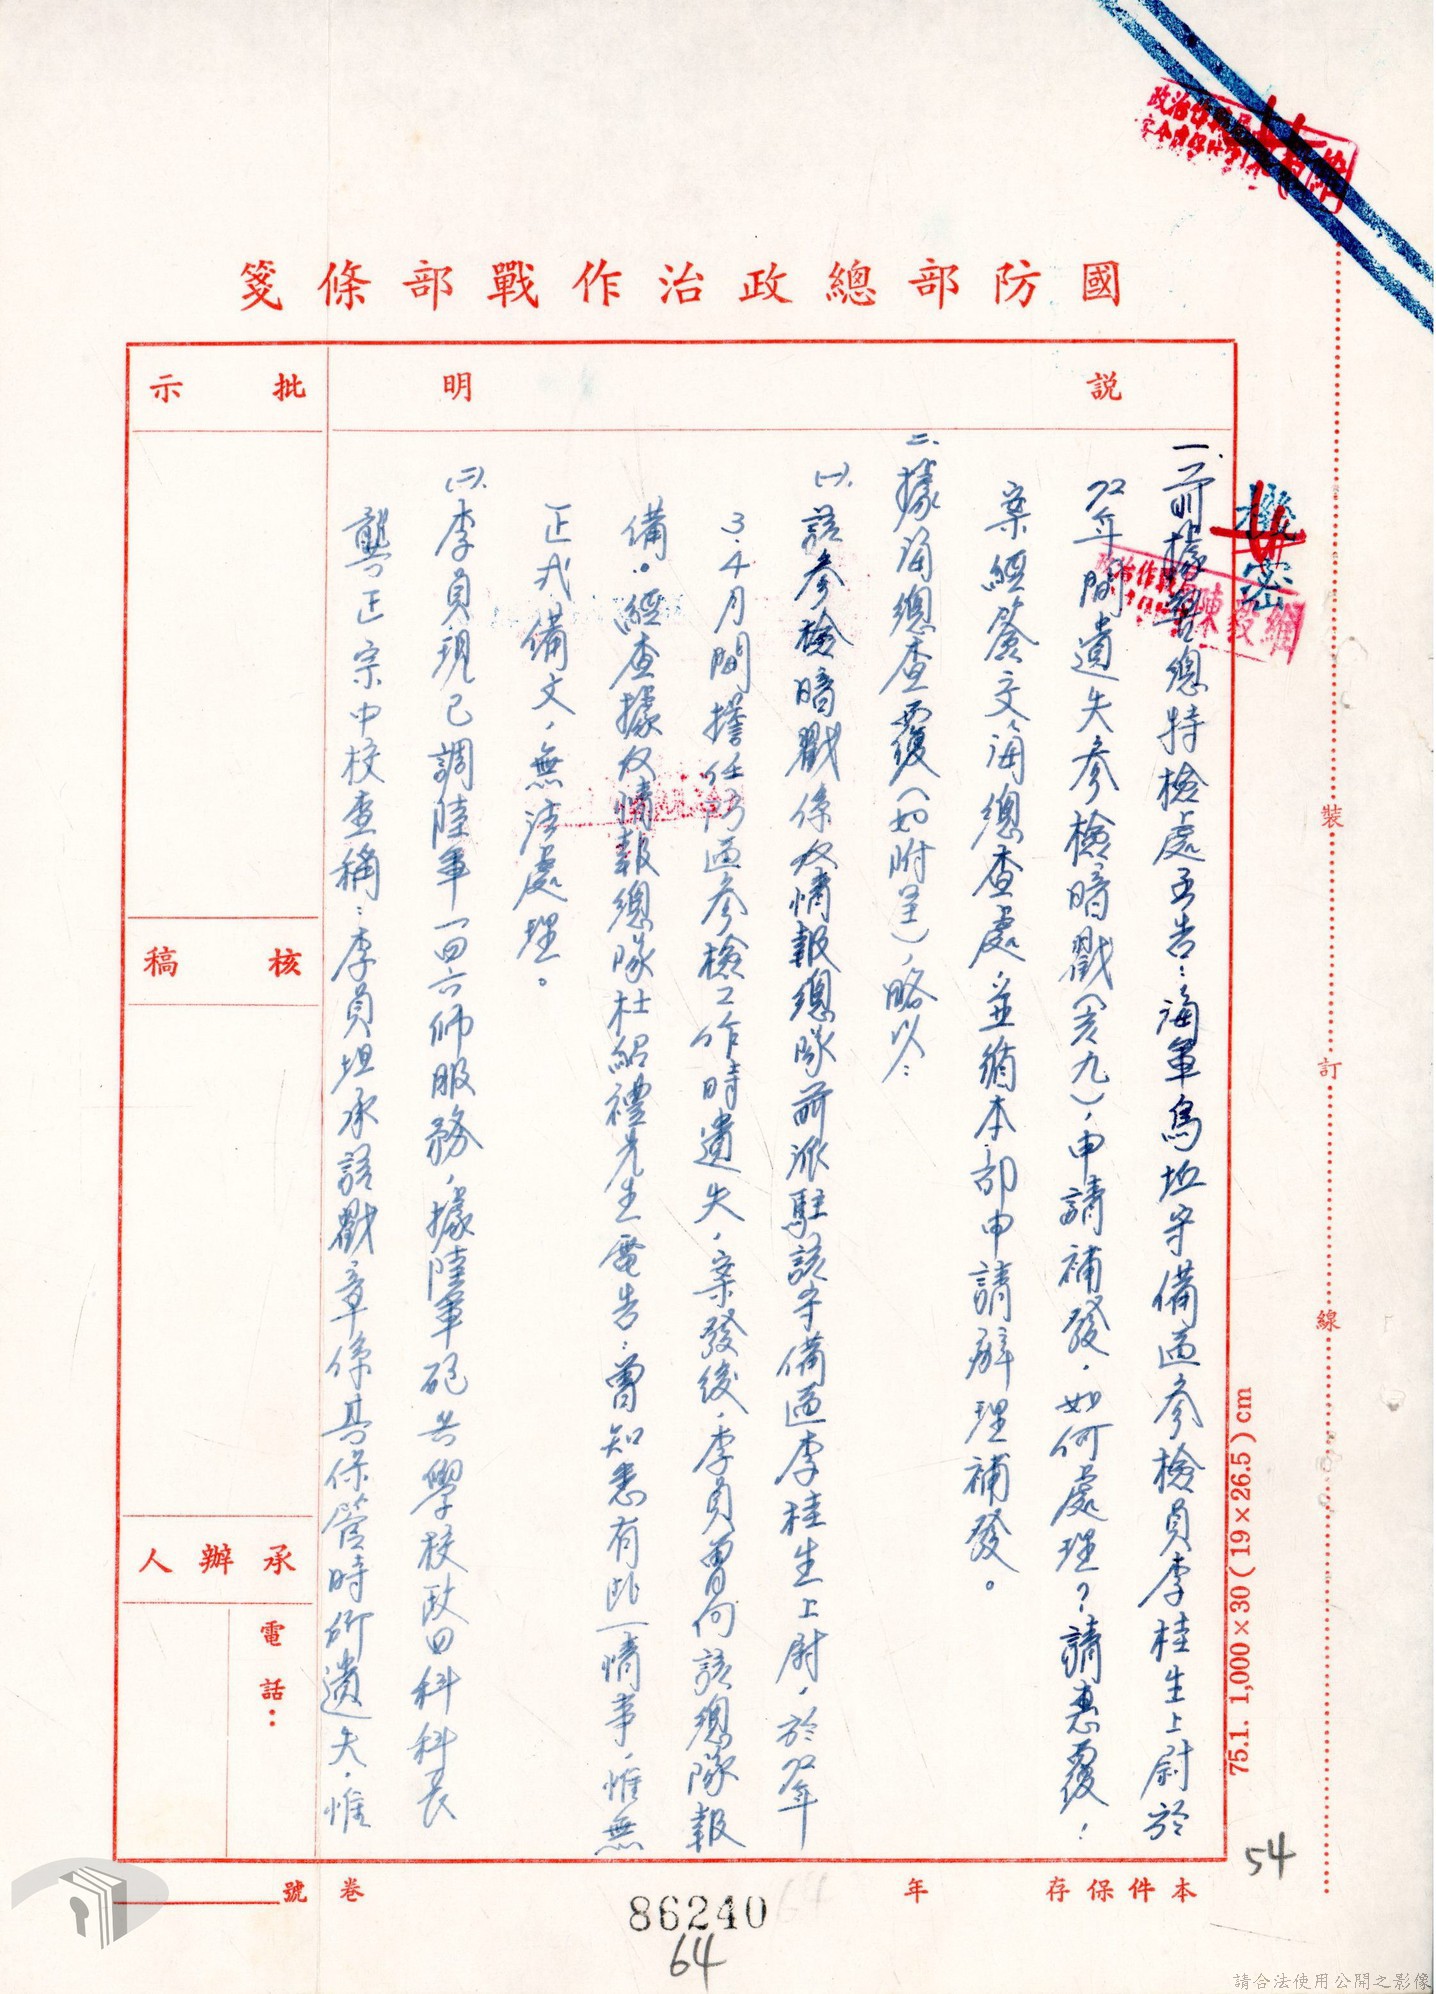 國防部總政治作戰部條箋
說明
批示
機密
一、前據警總特檢處函告：海軍烏坵守備區參檢員李桂生上尉於
72年間遺失參檢暗戳（亥九），申請補發，如何處理？請惠覆！
案經簽交海總查處，並循本部申請辦理補發。
二、據海總查覆（如附呈），略以：
㈠、該參檢暗戳係反情報總隊前派駐該守備區李桂生上尉，於72年
3.4月間擔任防區參檢工作時遺失，案發後，李員曾向該總隊報
備。經查據反情報總隊杜紹禮先生電告：曾知悉有此一情事，惟無
正式備文，無法處理。
㈡、李員現已調陸軍一四六師服務，據陸軍砲兵學校政四科科長
龔正宗中校查稱：李員坦承該戳章係其保管時所遺失，惟
核稿
承辦人
電話：
裝
訂
線
75.1. 1,000×30(19×26.5)cm
本件保存 年
卷 號
54
86240
64
請合法使用公開之影像